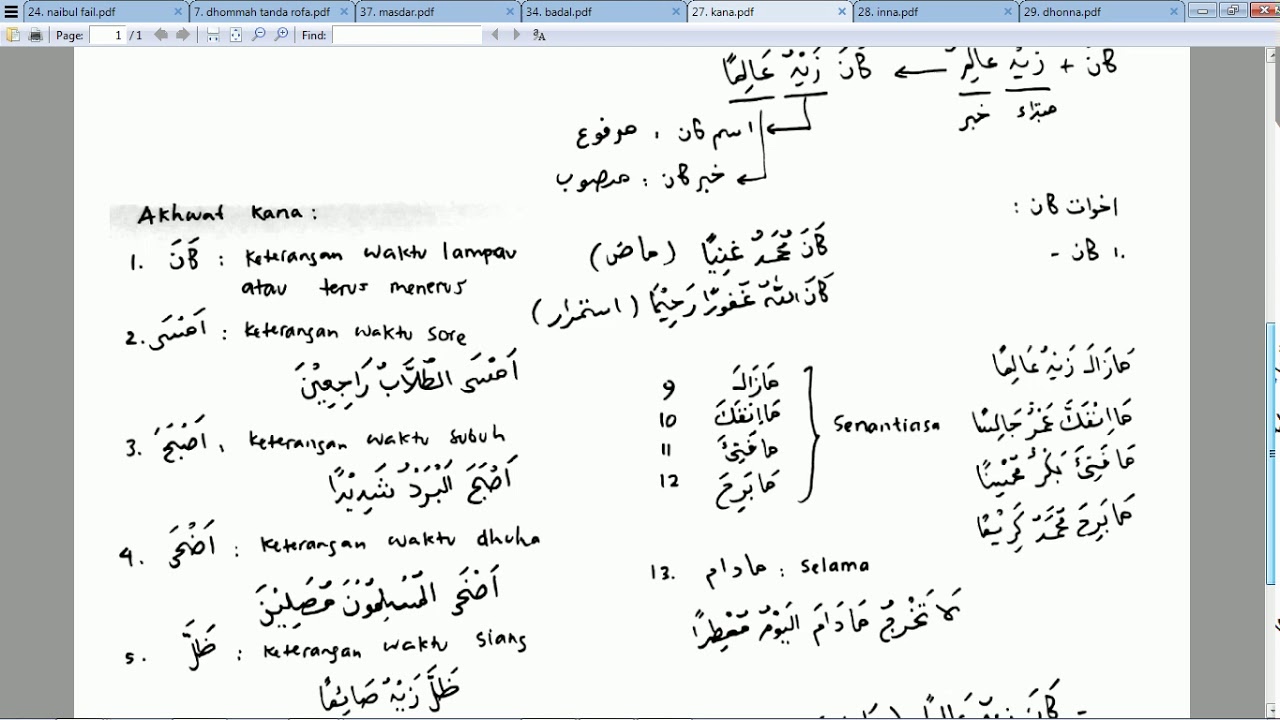 24. naibul fail.pdf
7. dhommah tanda rofa.pdf
37. masdar.pdf
34. badal.pdf
27. kana.pdf
28. inna.pdf
29. dhonna.pdf
Page: 1 / 1 Find:
كان + زيد عالم ← كَانَ زَيْدٌ عَالِمًا
مبتداء خبر
اسم كان : مرفوع
خبر كان : منصوب
Akhwat kana :
اخوات كان :
1. كَانَ : keterangan waktu lampau
atau terus menerus
١. كان -
كَانَ مُحَمَّدٌ غَنِيًّا (ماض)
كَانَ اللهُ غَفُوْرًا رَحِيْمًا (استمرار)
2. اَمْسَى : keterangan waktu sore
اَمْسَى الطُّلَّابُ رَاجِعِيْنَ
3. اَصْبَحَ : keterangan waktu subuh
اَصْبَحَ الْبَرْدُ شَدِيْدًا
4. اَضْحَى : keterangan waktu dhuha
اَضْحَى الْمُسْلِمُوْنَ مُصَلِّيْنَ
5. ظَلَّ : keterangan waktu siang
ظَلَّ زَيْدٌ صَائِمًا
9 مَازَالَ
10 مَاانْفَكَّ
11 مَا فَتِئَ
12 مَا بَرِحَ
Senantiasa
مَازَالَ زَيْدٌ عَالِمًا
مَاانْفَكَّ عَمْرٌ جَالِسًا
مَا فَتِئَ بَكْرٌ مُحْسِنًا
مَا بَرِحَ مُحَمَّدٌ كَرِيْمًا
13. مادام : selama
لَا تَخْرُجْ مَادَامَ الْيَوْمُ مُمْطِرًا